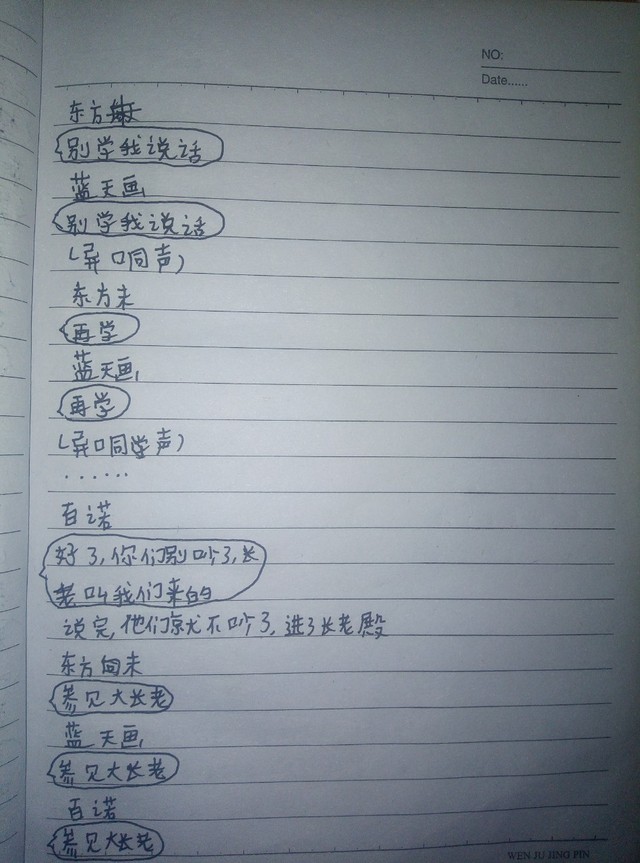 NO:
Date......
东方
别学我说话
蓝天画
别学我说话
(异口同声)
东方末
再学
蓝天画
再学
(异口同学声)
......
百诺
好了,你们别吵了,长
老叫我们来的
说完,他们就不吵了,进了长老殿
东方末
参见大长老
蓝天画
参见大长老
百诺
参见大长老
WEN JU JING PIN